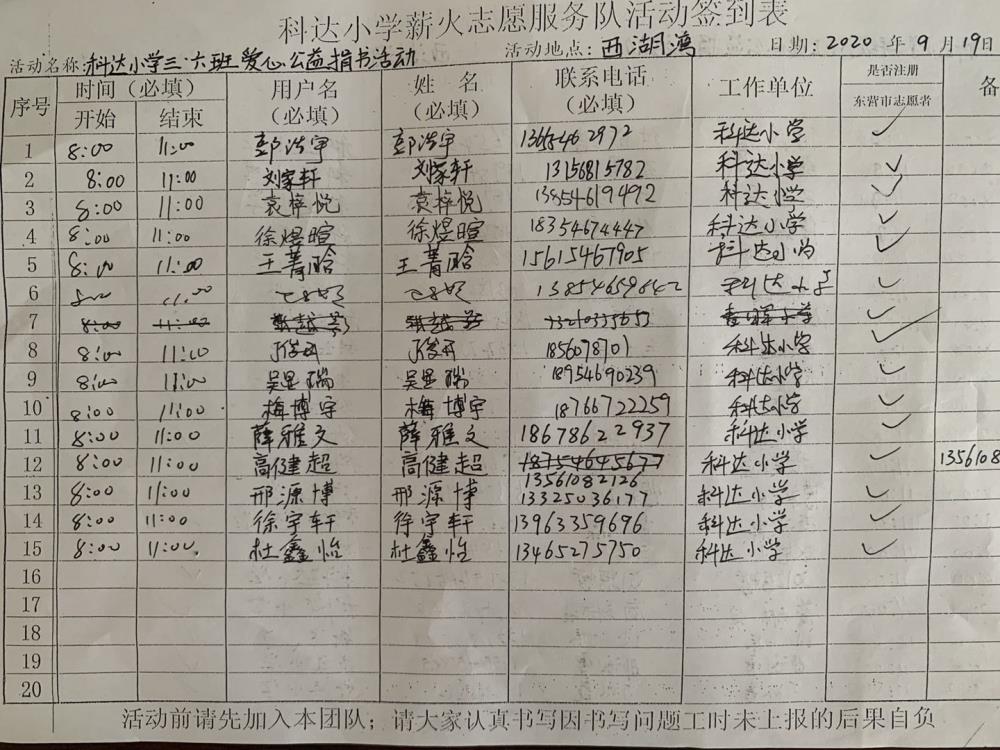 科达小学薪火志愿服务队活动签到表
活动名称:科达小学三·六班爱心公益捐书活动 活动地点:西湖湾 日期:2020年9月19日
序号 时间（必填） 用户名（必填） 姓 名（必填） 联系电话（必填） 工作单位 是否注册东营市志愿者 备
开始 结束
1 8:00 11:00 彭浩宇 彭浩宇 科达小学 ✓
2 8:00 11:00 刘家轩 刘家轩 13156815782 科达小学 ✓
3 8:00 11:00 袁梓悦 袁梓悦 13854619492 科达小学 ✓
4 8:00 11:00 徐煜暄 徐煜暄 18354674447 科达小学 ✓
5 8:00 11:00 王菁晗 王菁晗 15615467905 科达小学 ✓
6 8:00 11:00 13854659642 科达小学 ✓
7 8:00 11:00 ✓
8 8:00 11:00 1856078701 科达小学 ✓
9 8:00 11:00 吴昱瑞 吴昱瑞 18954690239 科达小学 ✓
10 8:00 11:00 梅博宇 梅博宇 18766722259 科达小学 ✓
11 8:00 11:00 薛雅文 薛雅文 18678622937 科达小学 ✓
12 8:00 11:00 高健超 高健超 18754645677 科达小学 ✓ 1356108
13561082126
13 8:00 11:00 邢源博 邢源博 13325036177 科达小学 ✓
14 8:00 11:00 徐宇轩 徐宇轩 13963359696 科达小学 ✓
15 8:00 11:00 杜鑫怡 杜鑫怡 13465275750 科达小学 ✓
16
17
18
19
20
活动前请先加入本团队；请大家认真书写因书写问题工时未上报的后果自负